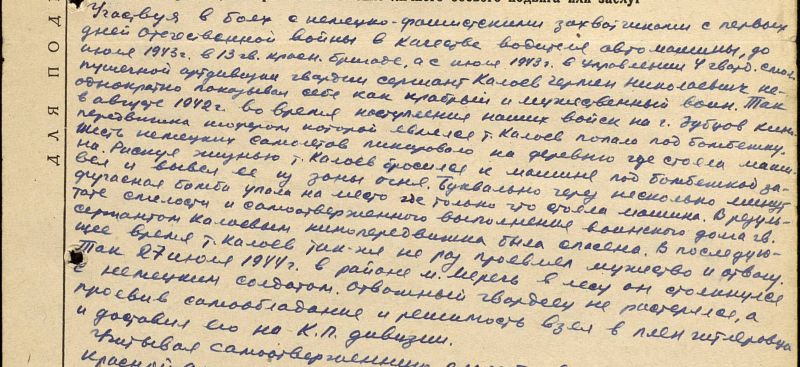 ДЛЯ ПОД
боевого подвига или заслуг
Участвуя в боях с немецко-фашистскими захватчиками с первых
дней отечественной войны в качестве водителя автомашины, до
июля 1943г. в 13 гв. красн. бригаде, а с июля 1943г. в управлении 4 гвард.
пушечной артдивизии гвардии сержант Калоев Чермен Николаевич не-
однократно показывал себя как храбрый и мужественный воин. Так
в августе 1942г. во время наступления наших войск на г. Зубцов кино-
передвижка шофером которой являлся т. Калоев попала под бомбежку.
Шесть немецких самолетов пикировало на деревню где стояла маши-
на. Рискуя жизнью т. Калоев бросился к машине под бомбежкой за-
вел и вывел ее из зоны огня. Буквально через несколько минут
фугасная бомба упала на место где только что стояла машина. В резуль-
тате смелости и самоотверженного выполнения воинского долга гв.
сержантом Калоевым кинопередвижка была спасена. В последую-
щее время т. Калоев так-же не раз проявлял мужество и отвагу.
Так 27 июля 1944г. в районе м. Меречь в лесу он столкнулся
с немецким солдатом. Отважный гвардеец не растерялся, а
проявив самообладание и решимость взял в плен гитлеровца
и доставил его на К.П. дивизии.
Учитывая самоотверженные
Красной